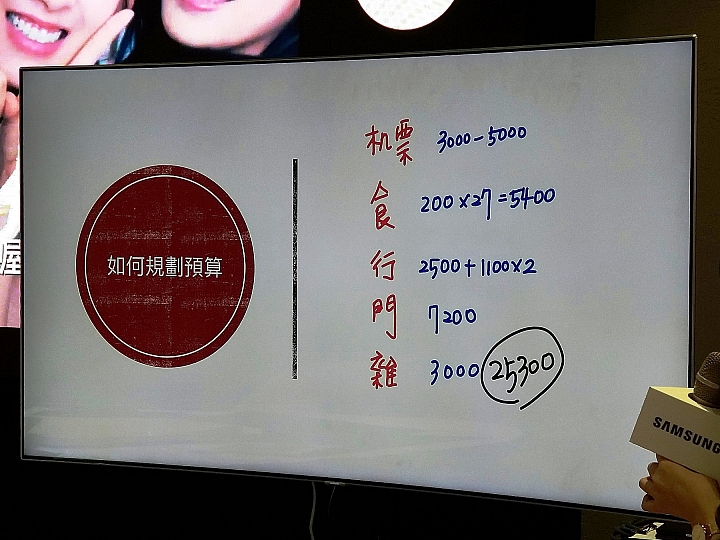 屋
如何規劃預算
机票 3000-5000
食 200×27=5400
行 2500+1100×2
門 7200
雜 3000 25300
SAMSUNG